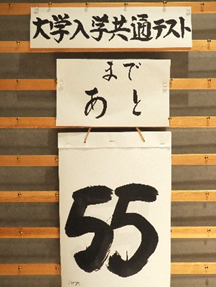 大学入学共通テスト
まで
あと
55